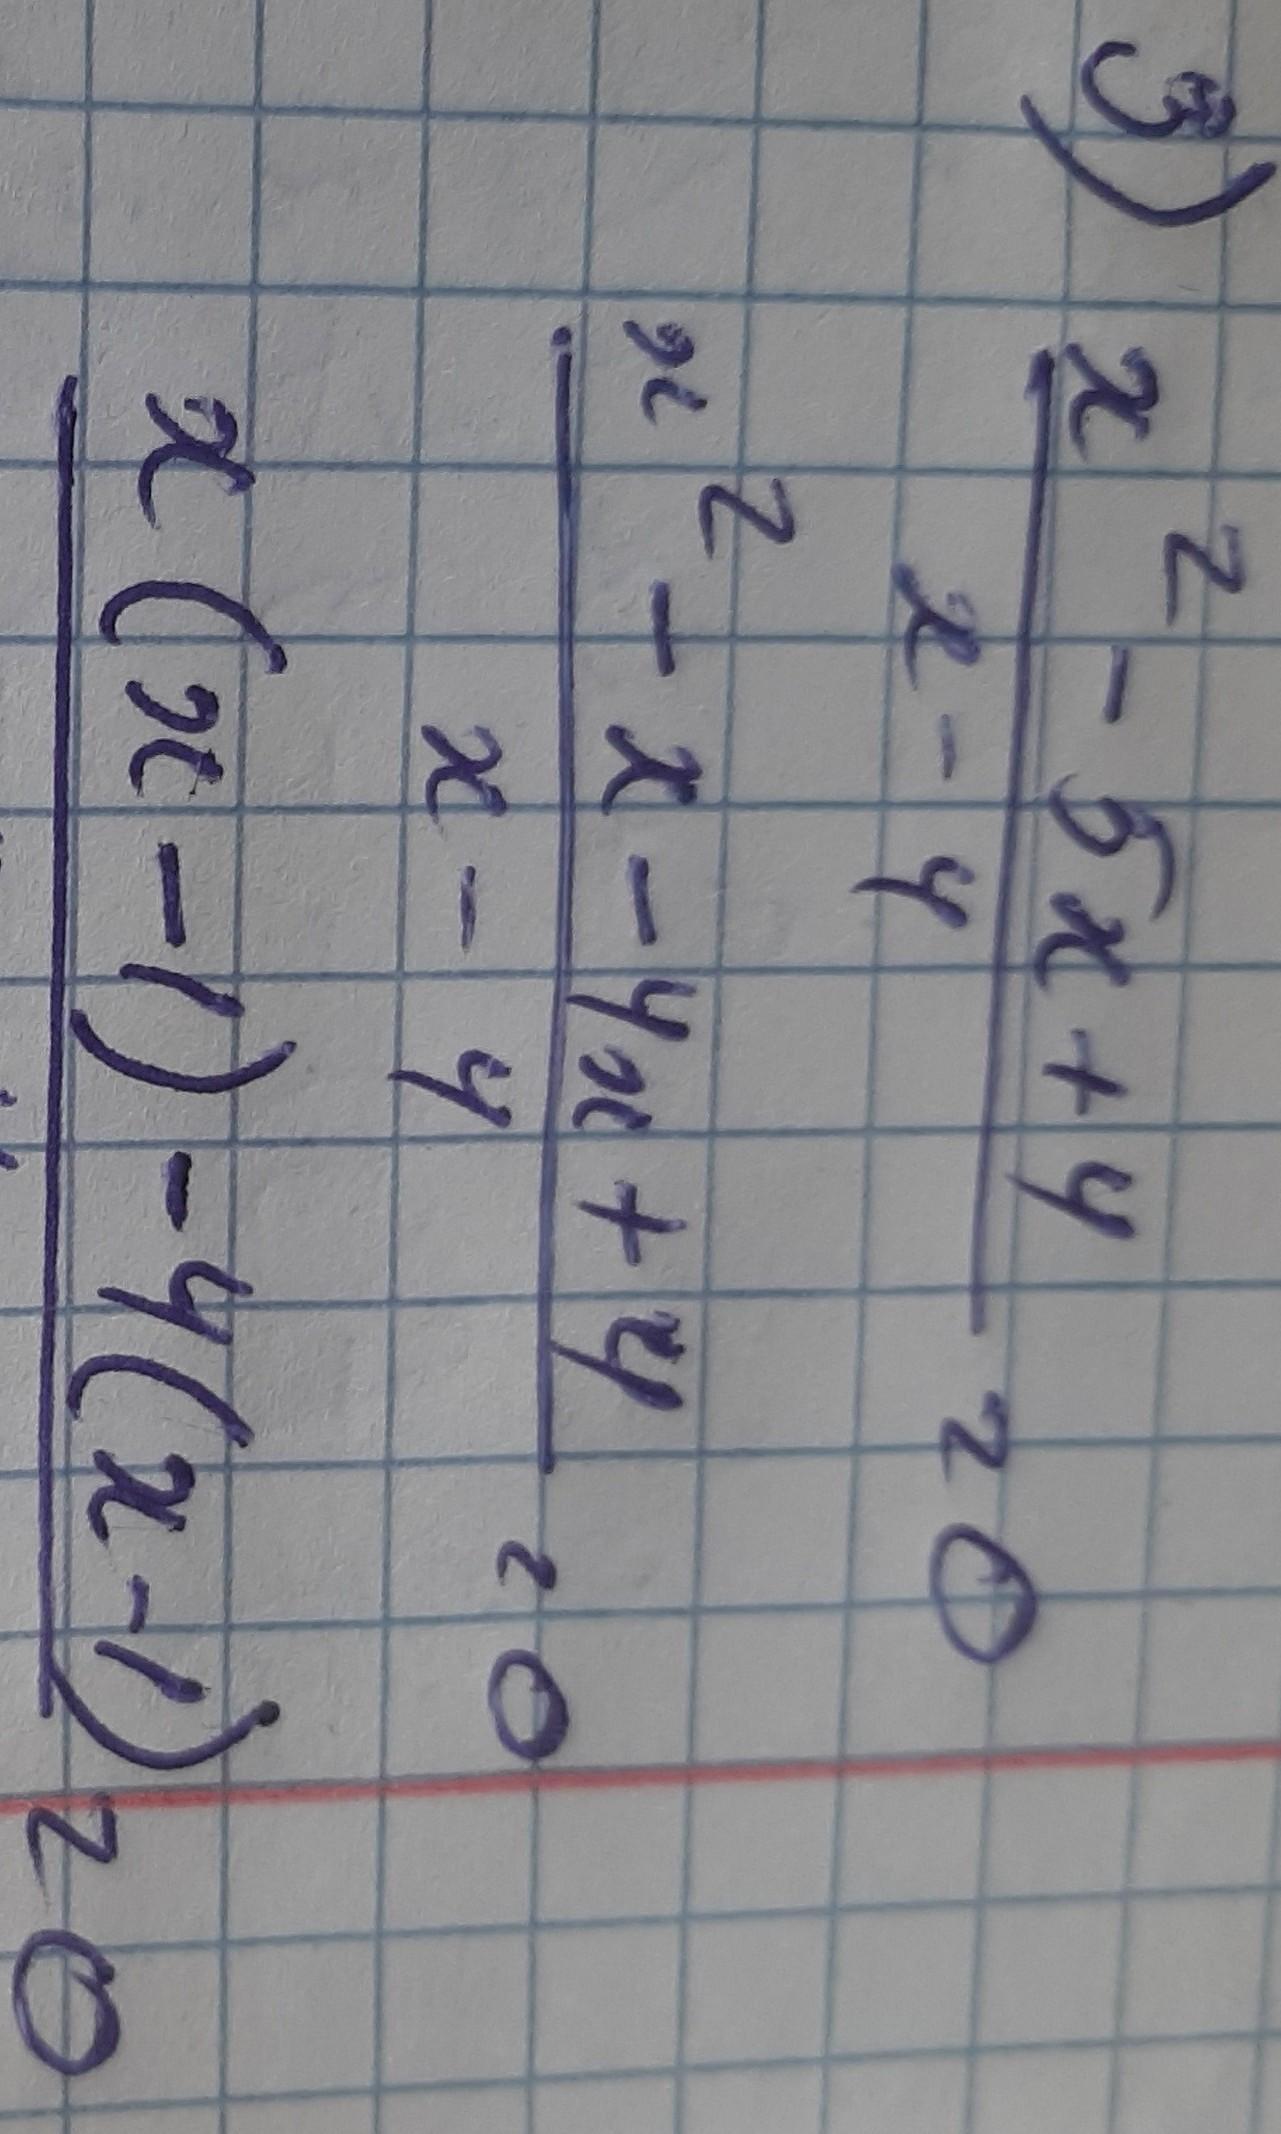 3) x² - 5x + 4
x - 4 = 0
x² - x - 4x + 4
x - 4 = 0
x(x - 1) - 4(x - 1) = 0